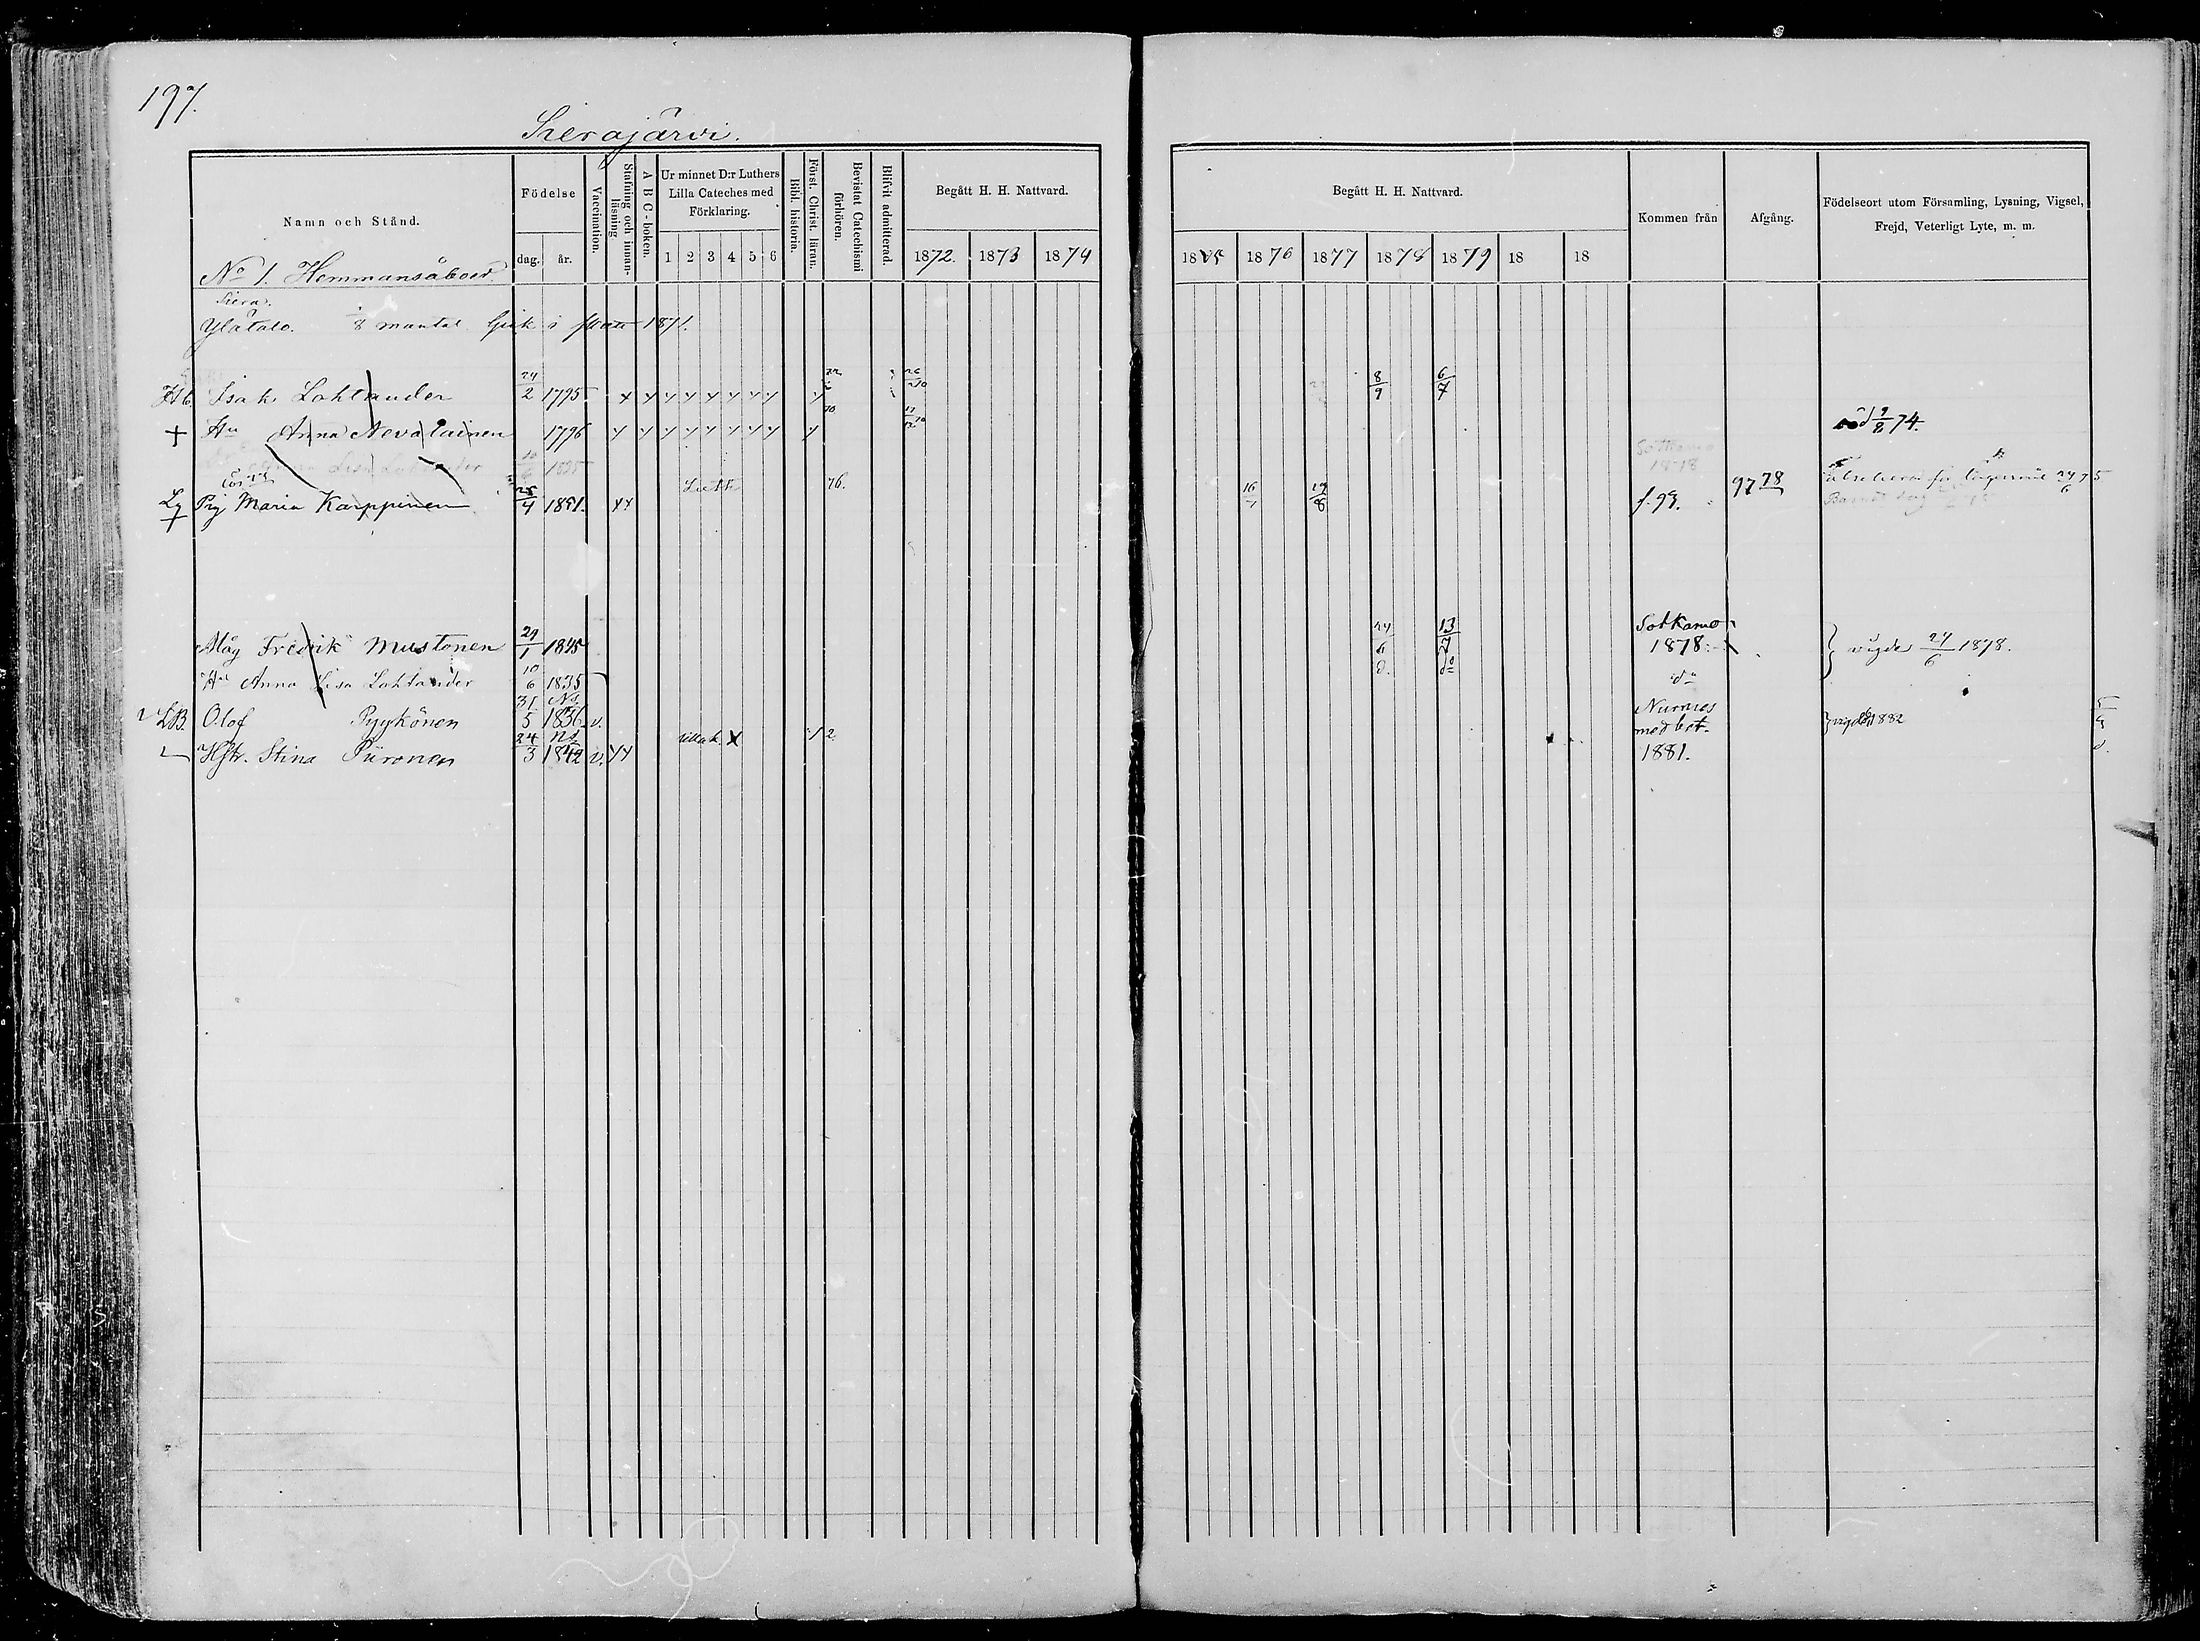 197.
Sierajärvi.
Namn och Stånd.
Födelse
dag.
år.
Vaccination.
Stafning och innan-läsning
A B C-boken.
Ur minnet D:r Luthers Lilla Cateches med Förklaring.
1 2 3 4 5 6
Bibl. historia.
Först. Christ. läran.
Bevistat Catechismi förhören.
Blifvit admitterad.
Begått H. H. Nattvard.
1872. 1873 1874
Begått H. H. Nattvard.
1875 1876 1877 1878 1879 18 18
Kommen från
Afgång.
Födelseort utom Församling, Lysning, Vigsel,
Frejd, Veterligt Lyte, m. m.
No 1. Hemmansåboer.
Siera.
Ylätalo. 1/8 mantal 1871.
Hb. Isak Lohtander 24/2 1795 8/9 6/7
+ Hu Anna Nevalainen 1796 död 9/8 74.
Lisa Lohtander 10/6 1835 Sotkamo 1878
Pig Maria Karppinen 25/4 1851. 76. 16/7 19/8 f. 93. 97 78
Måg Fredrik Mustonen 29/1 1845 24/6 13/7 Sotkamo 1878 } vigde 24/6 1878.
Hu Anna Lisa Lohtander 10/6 1835 d. do do
LB. Olof Pyykönen 31/5 1836 v. Nurmes med bet. 1881. } vigde 1882
Hstr. Stina Piironen 24/3 1842 v.